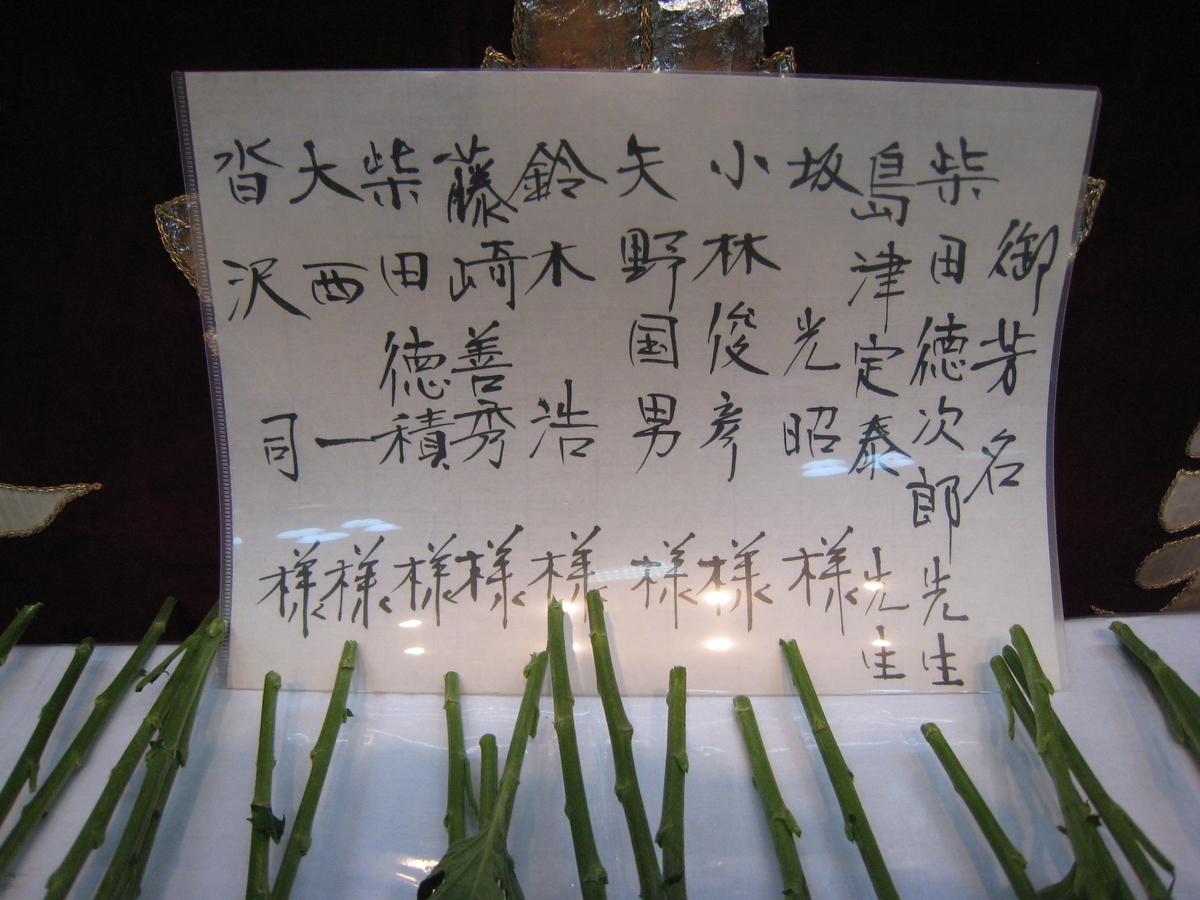 御芳名
柴田徳次郎先生
島津定泰先生
坂光昭様
小林俊彦様
矢野国男様
鈴木浩様
藤崎善秀様
柴田徳積様
大西一様
沓沢司様